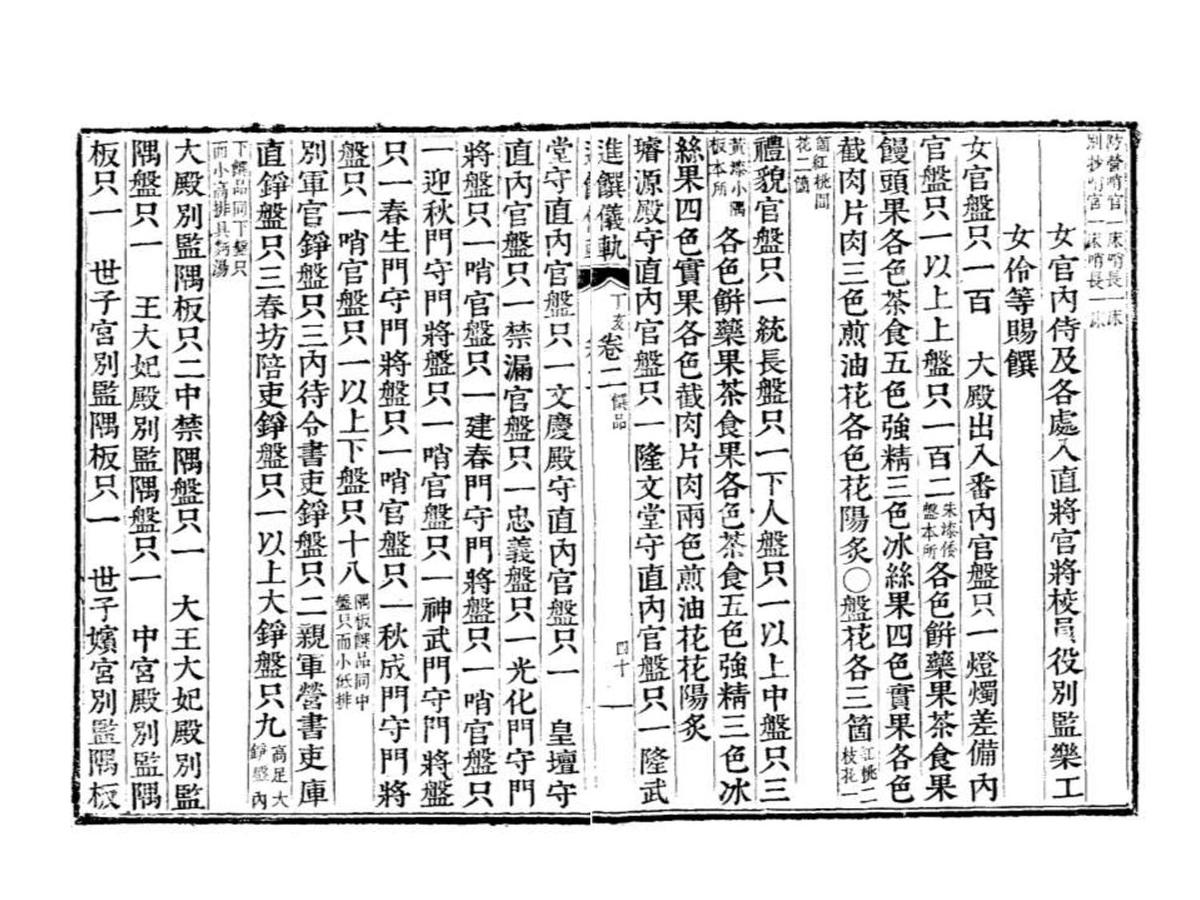 防營哨官一床哨長一床
別抄哨官一床哨長一床
女官內侍及各處入直將官將校員役別監樂工
女伶等賜饌
女官盤只一百　大殿出入番內官盤只一燈燭差備內
官盤只一以上上盤只一百二朱漆倭盤本所各色餠藥果茶食果
饅頭果各色茶食五色強精三色冰絲果四色實果各色
截肉片肉三色煎油花各色花陽炙○盤花各三箇紅桃二枝花一
箇紅桃間花二箇
禮貌官盤只一統長盤只一下人盤只一以上中盤只三
黃漆小隅板本所各色餠藥果茶食果各色茶食五色強精三色冰
絲果四色實果各色截肉片肉兩色煎油花花陽炙
璿源殿守直內官盤只一隆文堂守直內官盤只一隆武
進饌儀軌　丁亥　卷二　饌品　四十一
堂守直內官盤只一文慶殿守直內官盤只一　皇壇守
直內官盤只一禁漏官盤只一忠義盤只一光化門守門
將盤只一哨官盤只一建春門守門將盤只一哨官盤只
一迎秋門守門將盤只一哨官盤只一神武門守門將盤
只一春生門守門將盤只一哨官盤只一秋成門守門將
盤只一哨官盤只一以上下盤只十八隅板饌品同中盤只而小低排
別軍官錚盤只三內待令書吏錚盤只二親軍營書吏庫
直錚盤只三春坊陪吏錚盤只一以上大錚盤只九高足大錚盤內
下饌品同下盤只而小高排具麪湯
大殿別監隅板只二中禁隅盤只一　大王大妃殿別監
隅盤只一　王大妃殿別監隅盤只一　中宮殿別監隅
板只一　世子宮別監隅板只一　世子嬪宮別監隅板